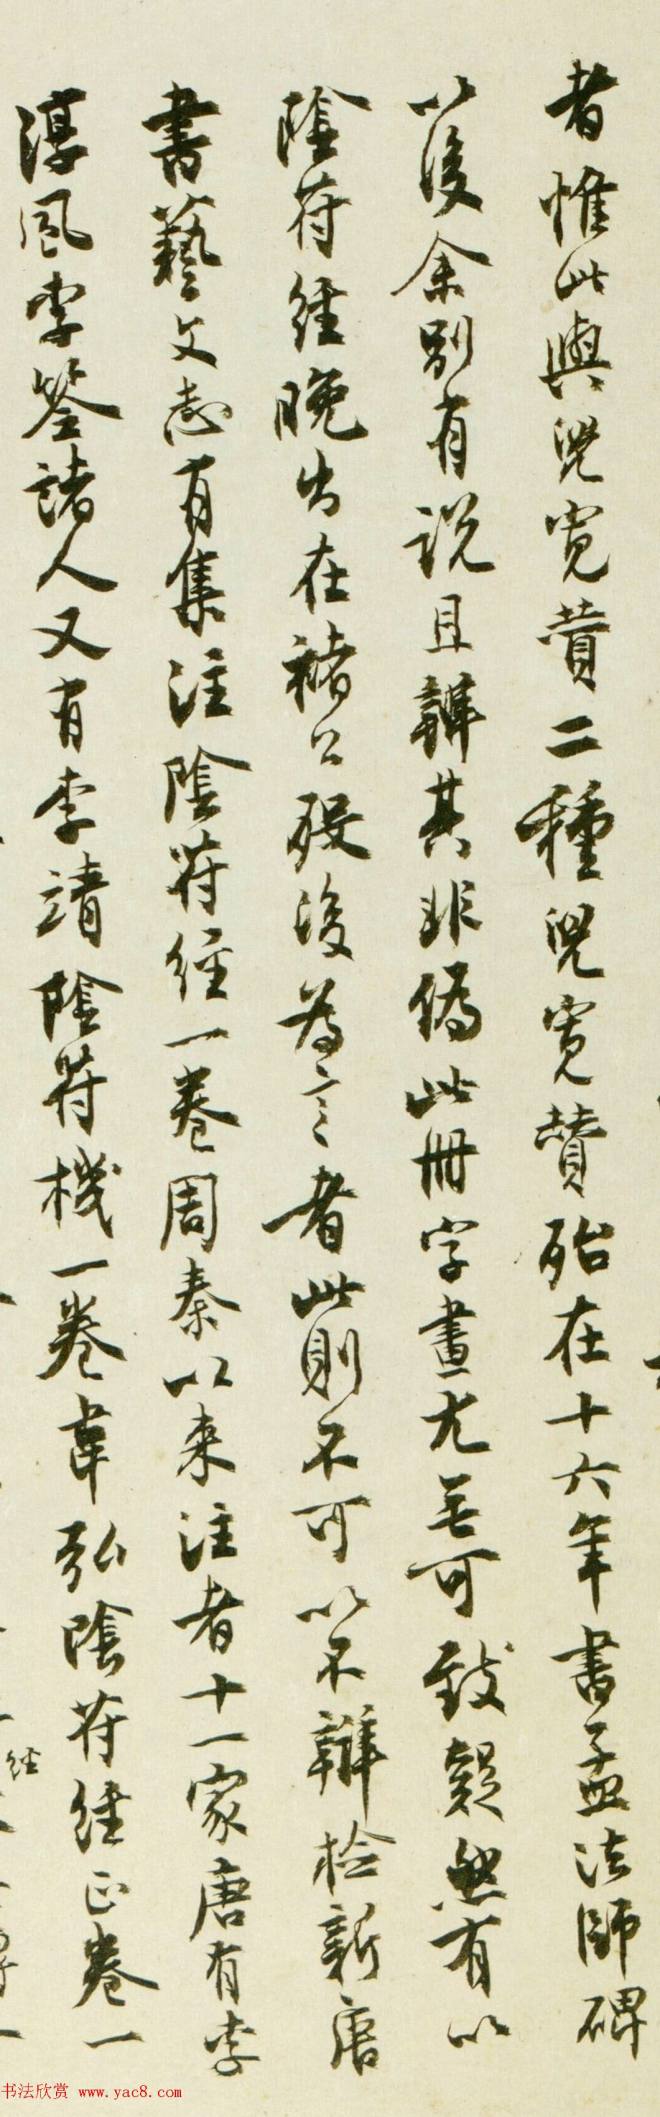 者惟此與兒寬贊二種兒寬贊殆在十六年書孟法師碑
以後余別有説且辯其非偽此冊字畫尤無可致疑然有以
陰苻經晚出在褚公歿後為言者此則不可以不辯檢新唐
書藝文志有集注陰苻經一卷周秦以来注者十一家唐有李
淳風李筌諸人又有李靖陰苻機一卷韋弘陰苻經正卷一
經
书法欣赏 www.yac8.com